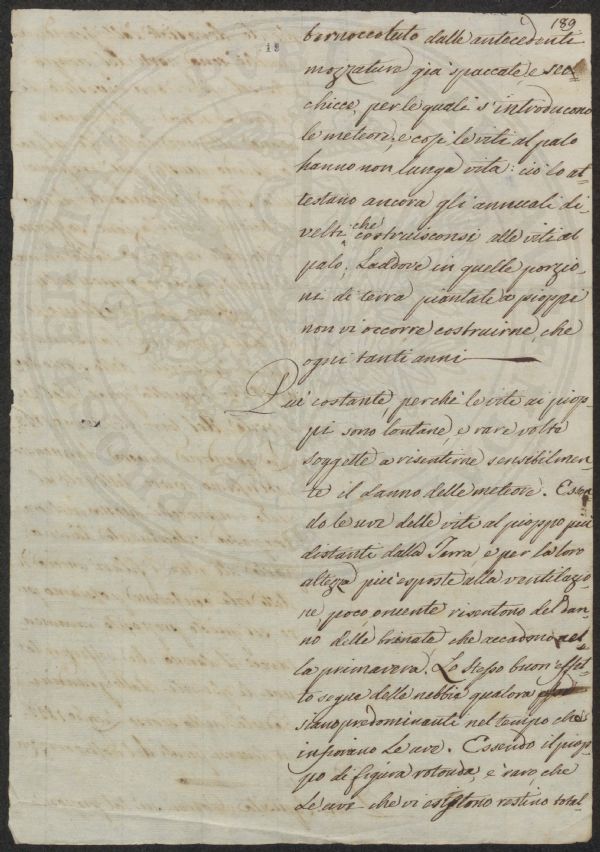 189
18
bernoccoluto dalle antecedenti
mozzature già spaccate, e sec-
chicce, per le quali s'introducono
le meteore, e così le viti al palo
hanno non lunga vita: ciò lo at-
testano ancora gli annuali di-
velti che costruisconsi alle viti al
palo. Laddove in quelle porzio-
ni di terra piantate a pioppi
non vi occorre costruirne, che
ogni tanti anni
Più costante, perchè le viti ai piop-
pi sono lontane, e rare volte
soggette a risentirne sensibilmen-
te il danno delle meteore. Essen-
do le uve delle viti al pioppo più
distanti dalla Terra e per la loro
altezza più esposte alla ventilazio-
ne, poco, o niente risentono del dan-
no delle brinate che accadono nel-
la primavera. Lo stesso buon effet-
to segue delle nebbie qualora
stano predominanti nel tempo che
infiorano le uve. Essendo il piop-
po di figura rotonda, è raro, che
le uve che vi esistono restino total-